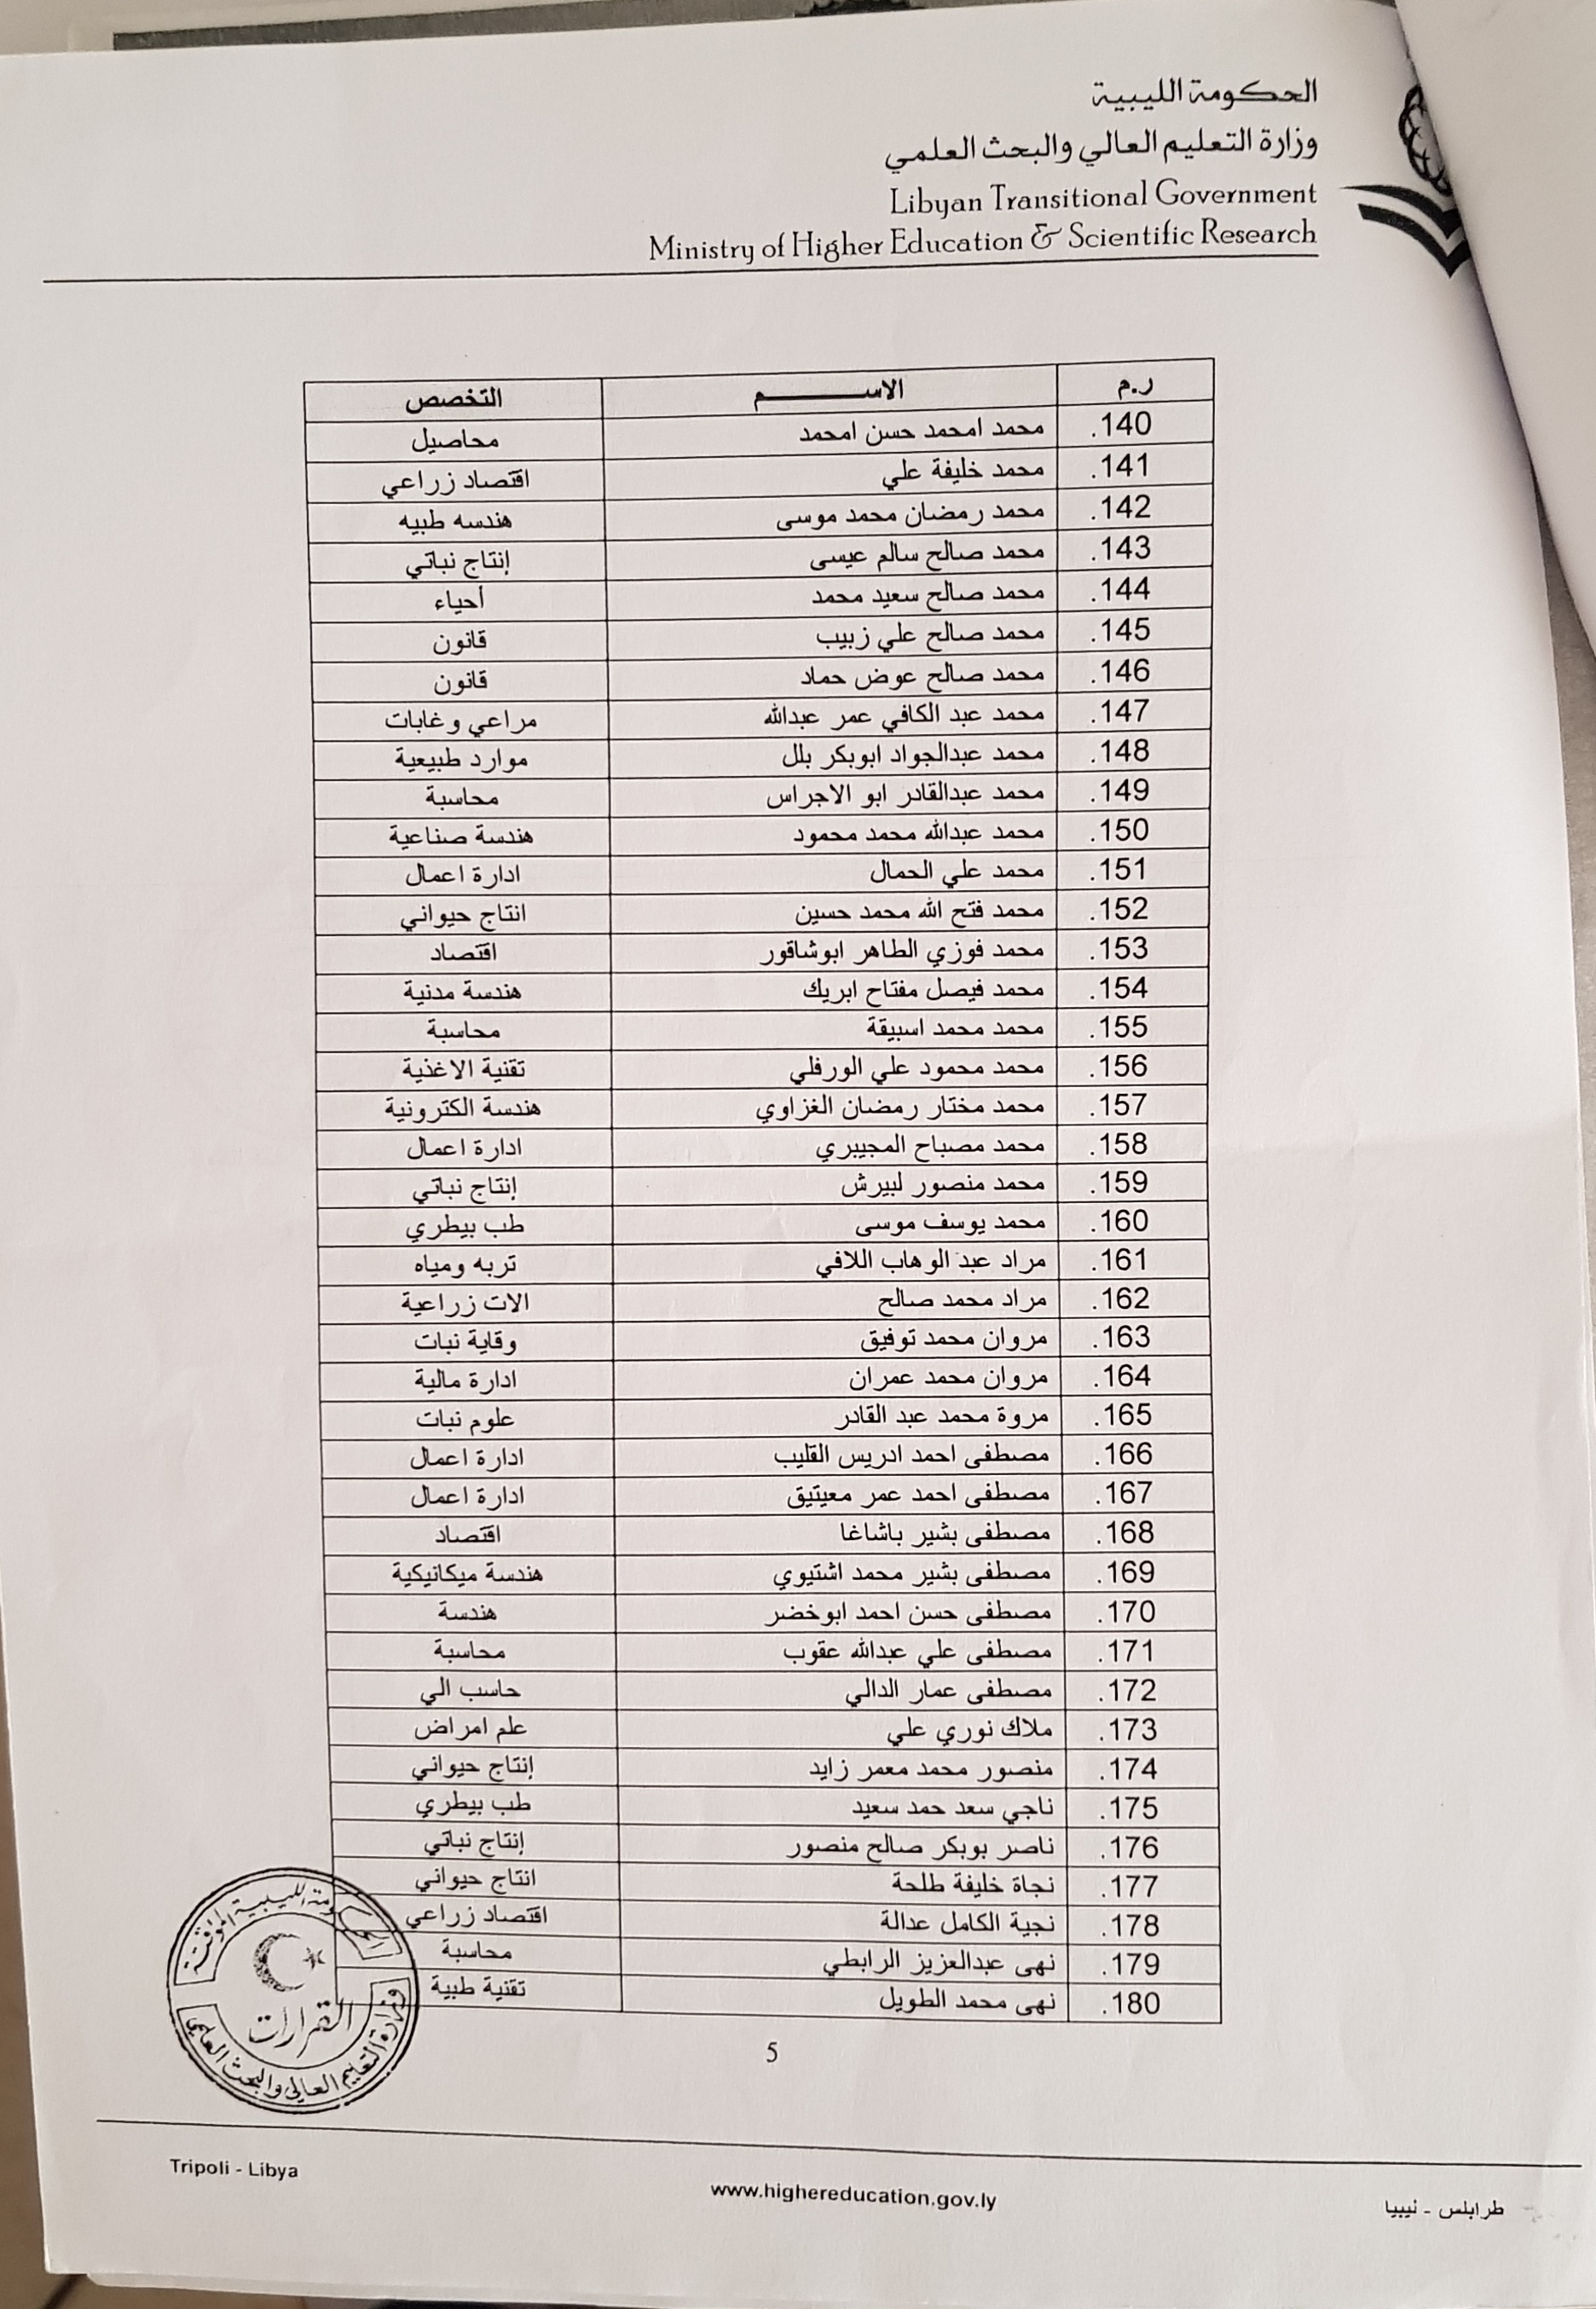 الحكومة الليبية
وزارة التعليم العالي والبحث العلمي
Libyan Transitional Government
Ministry of Higher Education & Scientific Research
ر.م الاســـــم التخصص
140. محمد امحمد حسن امحمد محاصيل
141. محمد خليفة علي اقتصاد زراعي
142. محمد رمضان محمد موسى هندسه طبيه
143. محمد صالح سالم عيسى إنتاج نباتي
144. محمد صالح سعيد محمد أحياء
145. محمد صالح علي زبيب قانون
146. محمد صالح عوض حماد قانون
147. محمد عبد الكافي عمر عبدالله مراعي وغابات
148. محمد عبدالجواد ابوبكر بلل موارد طبيعية
149. محمد عبدالقادر ابو الاجراس محاسبة
150. محمد عبدالله محمد محمود هندسة صناعية
151. محمد علي الحمال ادارة اعمال
152. محمد فتح الله محمد حسين انتاج حيواني
153. محمد فوزي الطاهر ابوشاقور اقتصاد
154. محمد فيصل مفتاح ابريك هندسة مدنية
155. محمد محمد اسبيقة محاسبة
156. محمد محمود علي الورفلي تقنية الاغذية
157. محمد مختار رمضان الغزاوي هندسة الكترونية
158. محمد مصباح المجيبري ادارة اعمال
159. محمد منصور لبيرش إنتاج نباتي
160. محمد يوسف موسى طب بيطري
161. مراد عبد الوهاب اللافي تربه ومياه
162. مراد محمد صالح الات زراعية
163. مروان محمد توفيق وقاية نبات
164. مروان محمد عمران ادارة مالية
165. مروة محمد عبد القادر علوم نبات
166. مصطفى احمد ادريس القليب ادارة اعمال
167. مصطفى احمد عمر معيتيق ادارة اعمال
168. مصطفى بشير باشاغا اقتصاد
169. مصطفى بشير محمد اشتيوي هندسة ميكانيكية
170. مصطفى حسن احمد ابوخضر هندسة
171. مصطفى علي عبدالله عقوب محاسبة
172. مصطفى عمار الدالي حاسب الي
173. ملاك نوري علي علم امراض
174. منصور محمد معمر زايد إنتاج حيواني
175. ناجي سعد حمد سعيد طب بيطري
176. ناصر بوبكر صالح منصور إنتاج نباتي
177. نجاة خليفة طلحة انتاج حيواني
178. نجية الكامل عدالة اقتصاد زراعي
179. نهى عبدالعزيز الرابطي محاسبة
180. نهى محمد الطويل تقنية طبية
الليبية المؤقتة
القرارات
وزارة التعليم العالي والبحث العلمي
5
Tripoli - Libya
www.highereducation.gov.ly
طرابلس - ليبيا